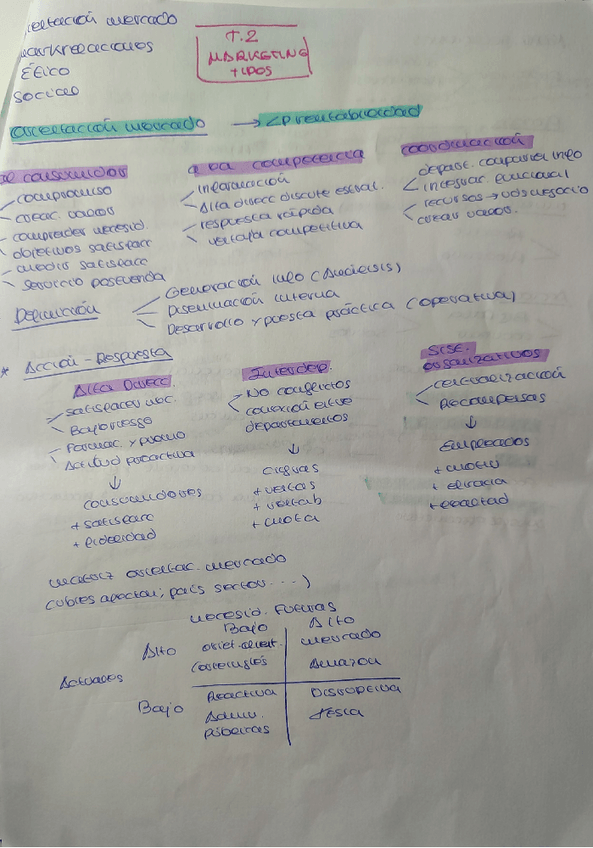 orientación mercado
marketing relaciones
Ético
Social
T.2
MARKETING
+ IDOS
orientación mercado → < rentabilidad
al consumidor
compromiso
crear. valor
comprender necesid.
objetivos satisfacc
medir satisfacc
servicio postventa
a la competencia
información
Alta direcc discute estrat.
respuesta rápida
ventaja competitiva
coordinación
depart. comparten info
integrar funcional
recursos →
crear valor.
Definición
Generación info (Análisis)
Diseminación interna
Desarrollo y puesta práctica (operativa)
* Acción - Respuesta
Alta Direcc.
satisfacer nec.
Bajo riesgo
Formac. y promo
Actitud proactiva
↓
consumidores
+ satisfacc
+ fidelidad
Interdep.
No conflictos
conexión entre
departamentos
↓
+ ventas
+ rentab
+ cuota
Sist.
organizativos
centralización
Recompensas
↓
Empleados
+ motiv
+ eficacia
+ lealtad
matriz orientac. mercado
país sector ...)
necesid. Futuras
Bajo Alto
Actuales
Alto orient. client. mercado
Amazon
Bajo Reactiva Disruptiva
Admin. Tesla